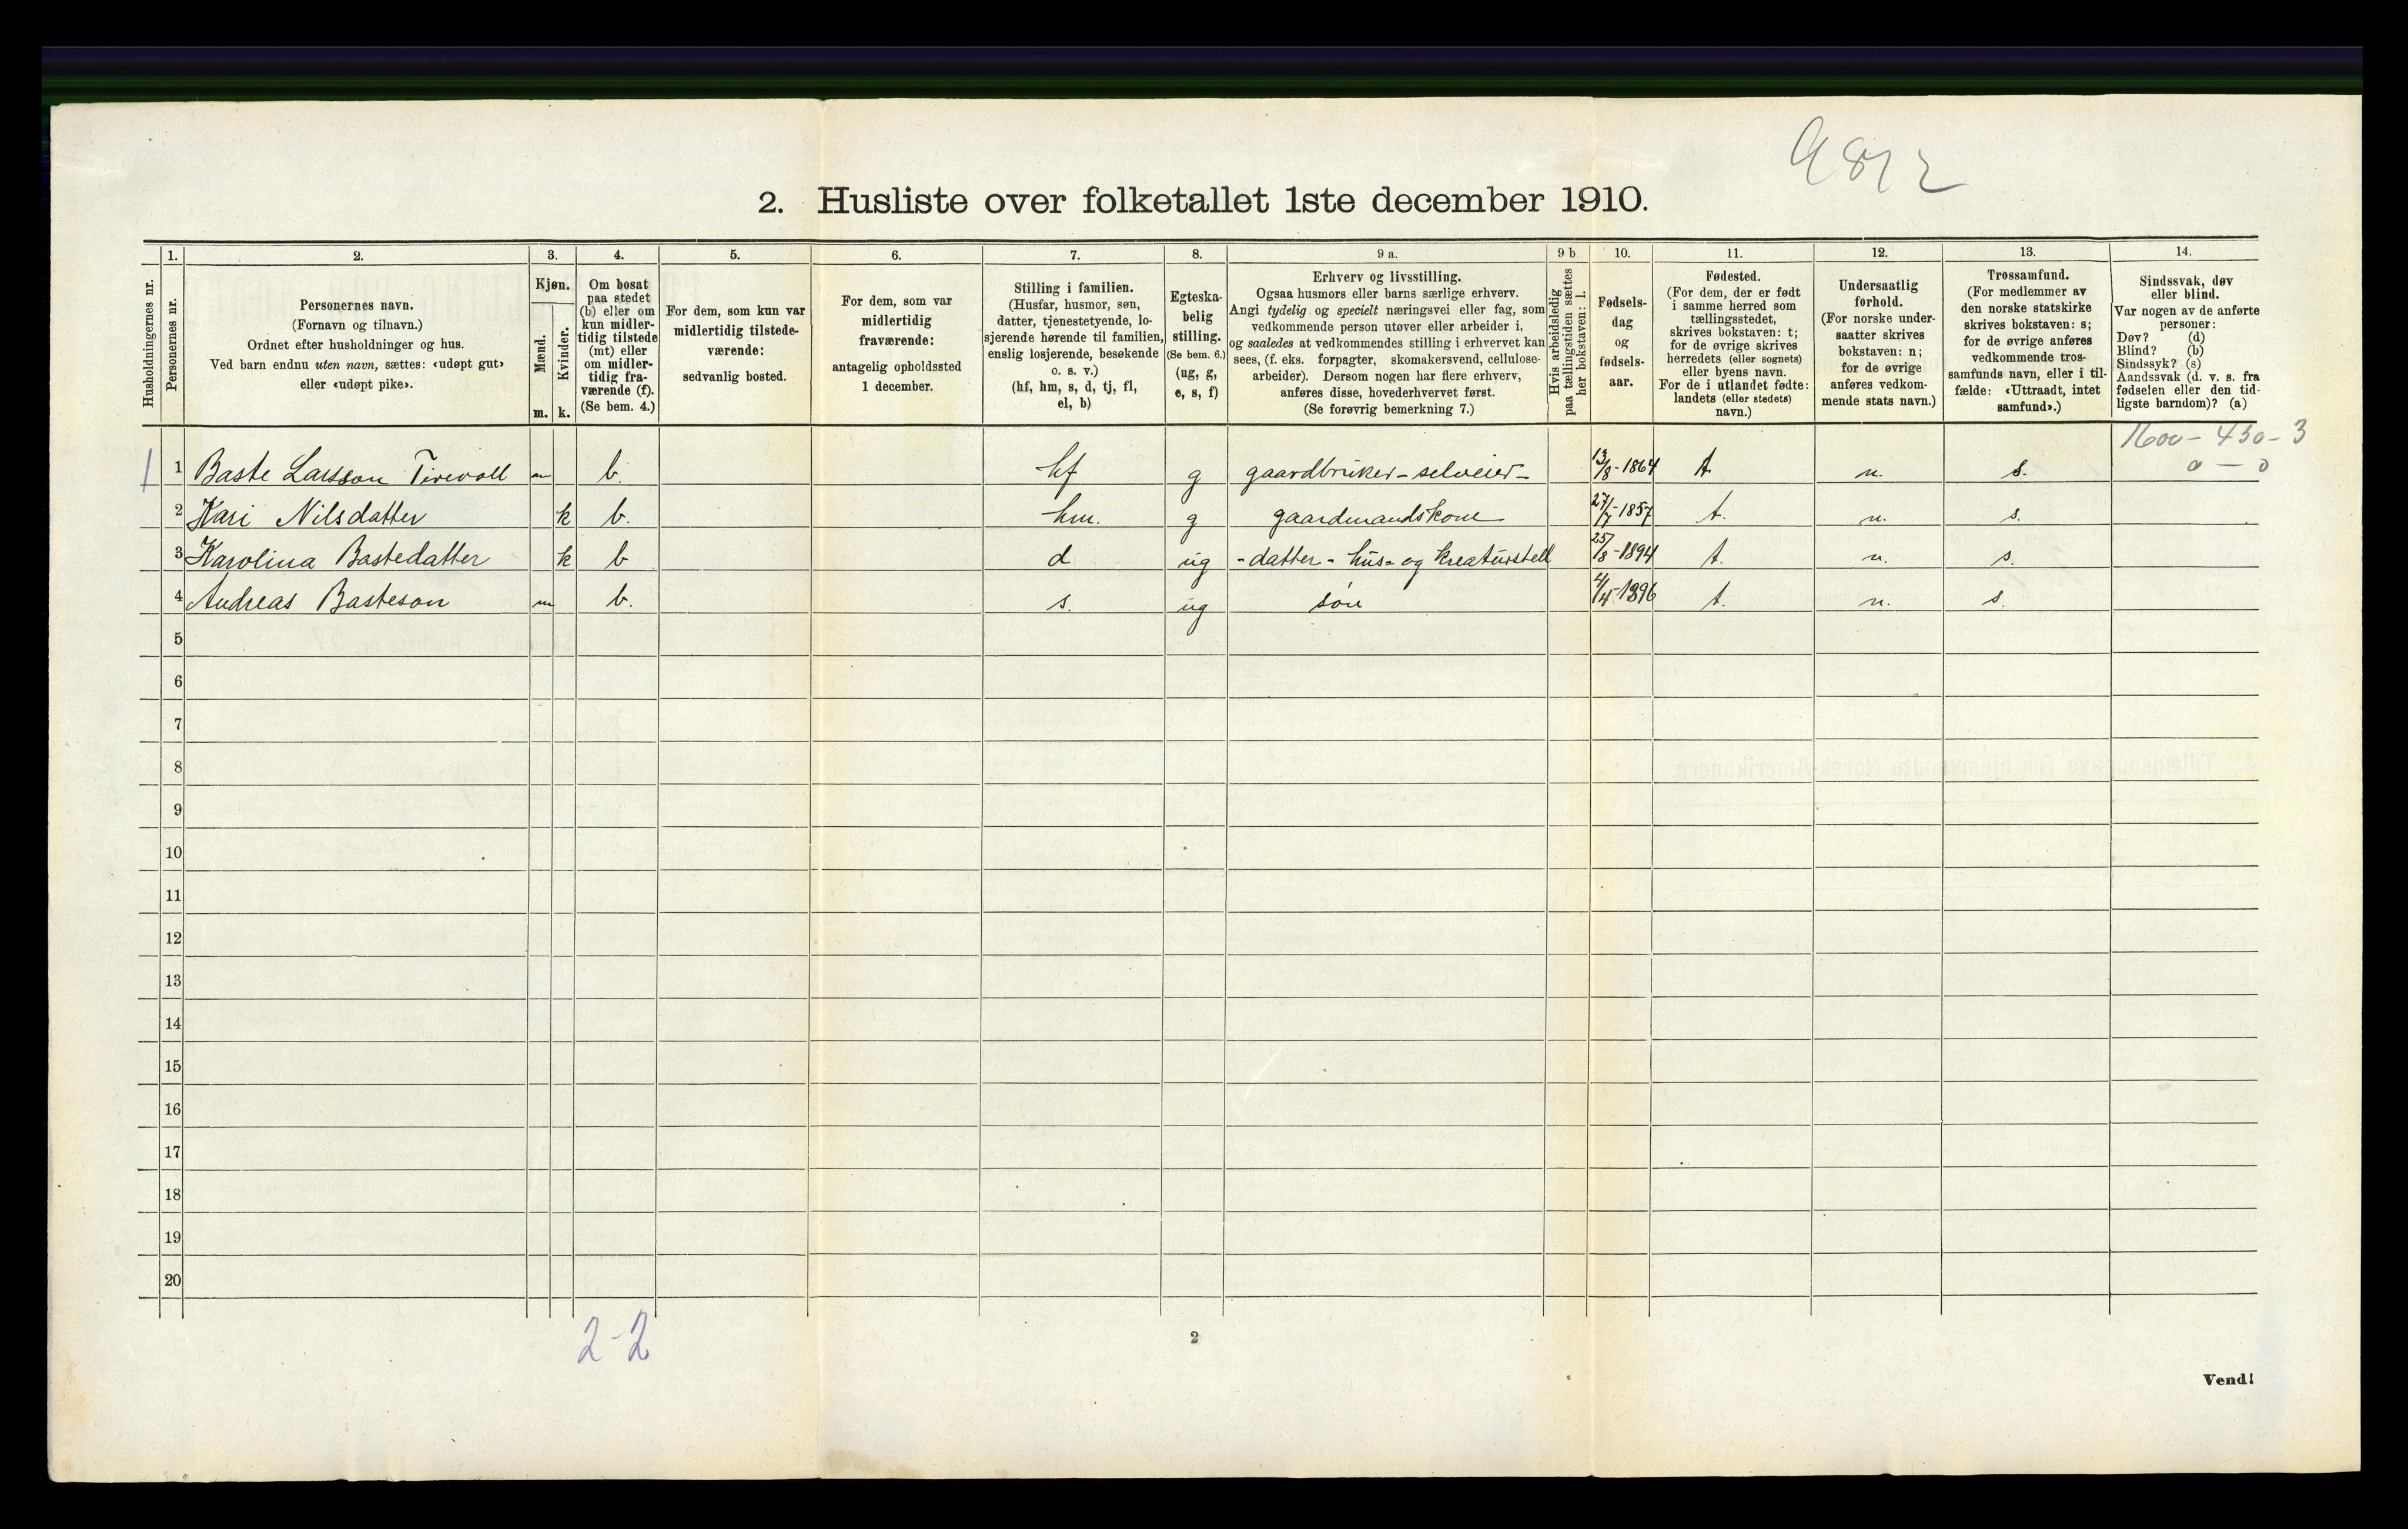 9812
2. Husliste over folketallet 1ste december 1910.
Husholdningernes nr.
1.
Personernes nr.
2.
Personernes navn.
(Fornavn og tilnavn.)
Ordnet efter husholdninger og hus.
Ved barn endnu uten navn, sættes: «udøpt gut»
eller «udøpt pike».
3.
Kjøn.
Mænd.
Kvinder.
m. k.
4.
Om bosat
paa stedet
(b) eller om
kun midler-
tidig tilstede
(mt) eller
om midler-
tidig fra-
værende (f).
(Se bem. 4.)
5.
For dem, som kun var
midlertidig tilstede-
værende:
sedvanlig bosted.
6.
For dem, som var
midlertidig
fraværende:
antagelig opholdssted
1 december.
7.
Stilling i familien.
(Husfar, husmor, søn,
datter, tjenestetyende, lo-
sjerende hørende til familien,
enslig losjerende, besøkende
o. s. v.)
(hf, hm, s, d, tj, fl,
el, b)
8.
Egteska-
belig
stilling.
(Se bem. 6.)
(ug, g,
e, s, f)
9 a.
Erhverv og livsstilling.
Ogsaa husmors eller barns særlige erhverv.
Angi tydelig og specielt næringsvei eller fag, som
vedkommende person utøver eller arbeider i,
og saaledes at vedkommendes stilling i erhvervet kan
sees, (f. eks. forpagter, skomakersvend, cellulose-
arbeider). Dersom nogen har flere erhverv,
anføres disse, hovederhvervet først.
(Se forøvrig bemerkning 7.)
9 b
Hvis arbeidsledig
paa tællingstiden sættes
her bokstaven: l.
10.
Fødsels-
dag
og
fødsels-
aar.
11.
Fødested.
(For dem, der er født
i samme herred som
tællingsstedet,
skrives bokstaven: t;
for de øvrige skrives
herredets (eller sognets)
eller byens navn.
For de i utlandet fødte:
landets (eller stedets)
navn.)
12.
Undersaatlig
forhold.
(For norske under-
saatter skrives
bokstaven: n;
for de øvrige
anføres vedkom-
mende stats navn.)
13.
Trossamfund.
(For medlemmer av
den norske statskirke
skrives bokstaven: s;
for de øvrige anføres
vedkommende tros-
samfunds navn, eller i til-
fælde: «Uttraadt, intet
samfund».)
14.
Sindssvak, døv
eller blind.
Var nogen av de anførte
personer:
Døv? (d)
Blind? (b)
Sindssyk? (s)
Aandssvak (d. v. s. fra
fødselen eller den tid-
ligste barndom)? (a)
1600 - 430 - 3
0 - 0
1 1 Baste Larsson Tirevoll m b. hf g gaardbruker - selveier - 13/8 - 1864 t. n. s.
2 Kari Nilsdatter k b. hm. g gaardmandskone 27/7 - 1857 t. n. s.
3 Karolina Bastedatter k b d ug - datter - hus- og kreaturstell 25/8 - 1894 t. n. s.
4 Andreas Basteson m b. s. ug søn 4/4 - 1896 t. n. s.
5
6
7
8
9
10
11
12
13
14
15
16
17
18
19
20
2-2
2
Vend!